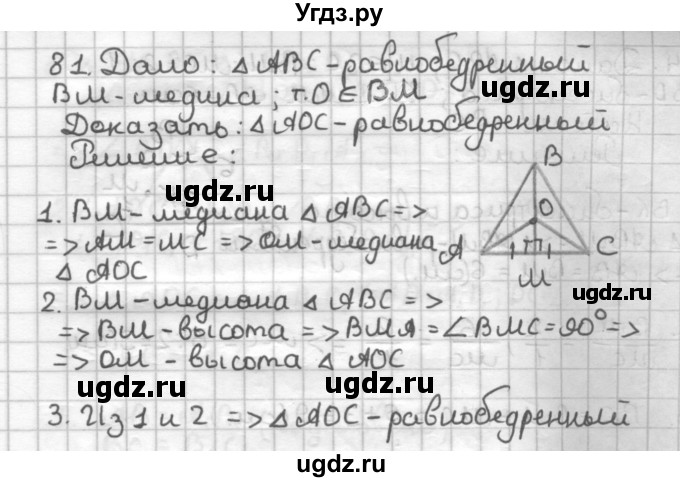 Угдз.ру
81. Дано: △ABC-равнобедренный
BM-медина; т.O∈BM
ugdz.ru
ugdz.ru
Доказать: △AOC-равнобедренный
Решение:
ugdz.ru
B
O
A
C
M
1. BM-медиана △ABC=>
=>AM=MC=>OM-медиана
△ AOC
ugdz.ru
ugdz.ru
2. BM-медиана △ABC=>
=>BM-высота=>BMA=∠BMC=90°=>
=>OM-высота △AOC
ugdz.ru
3. Из 1 и 2 =>△AOC-равнобедренный
ugdz.ru
ugdz.ru